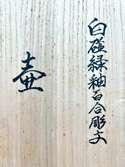 白磁緑釉百合彫文
壷